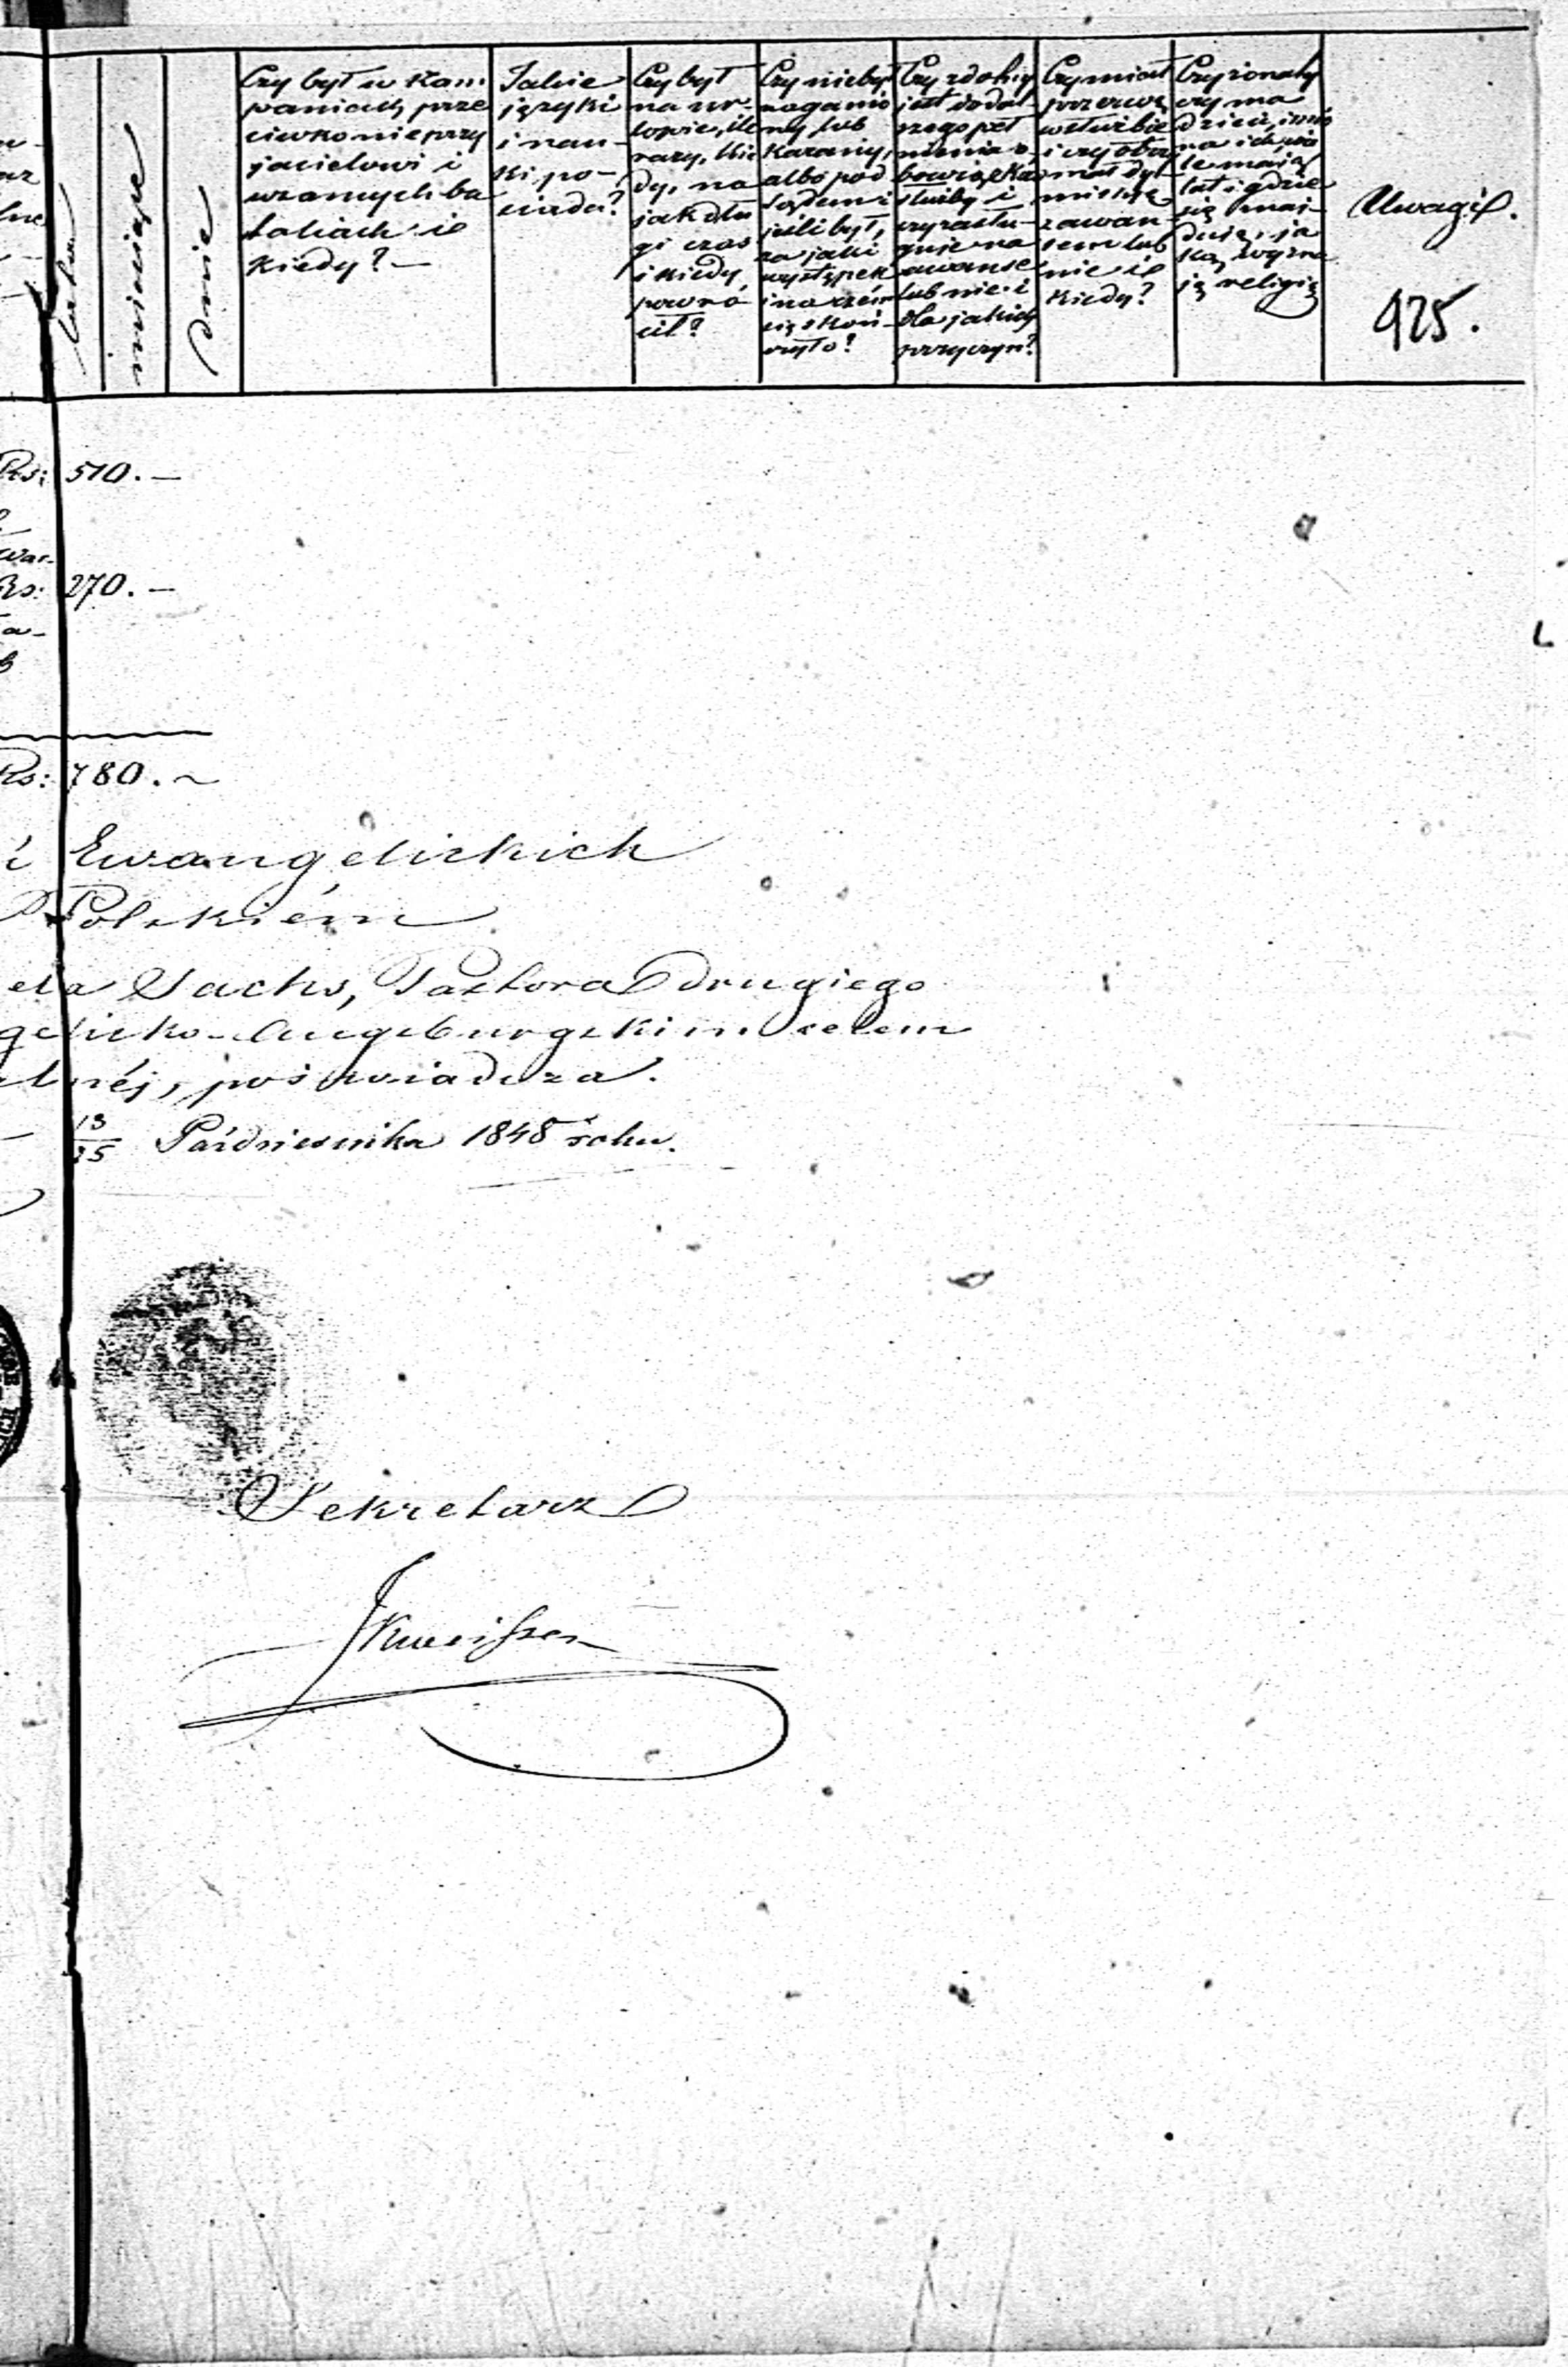 lata
miesiące
dnie
Czy był w Kam
paniach prze
ciwko nieprzy
jacielowi i
w samych ba
taliach i
Kiedy? —
Jakie
języki
i nau-
ki po-
siada?
Czy był
na ur-
lopie, ile
razy, kie
dy, na
jak dłu
gi czas
i kiedy
powró
cił?
Czy nie był
nagannio
ny lub
karany,
albo pod
sądem i
jeśli był,
za jaki
występek
i na czém
się skoń-
czyło?
Czy zdolny
jest do dal
szego peł
nienia o
bowiązków
służby i
czy zasłu-
guje na
awanse
lub nie i
dla jakich
przyczyn?
Czy miał
przerwę
w służbie
i czy otrzy
mał dy-
missyę
z awan
sem lub
nie i
kiedy?
Czy żonaty
czy ma
dzieci, imio
na ich, wie
le mają
lat i gdzie
się znaj-
dują, ja
ką wyzna
ją religię
Uwagi.
925.
Rs: 510. —
Rs: 270. —
Rs: 780. ~
i Ewangelickich
Polskiém
ela Sachs, Pastora drugiego
gelicko-Augsburgskim celem
lnéj, poświadcza.
13/25 Października 1848 roku.
Sekretarz